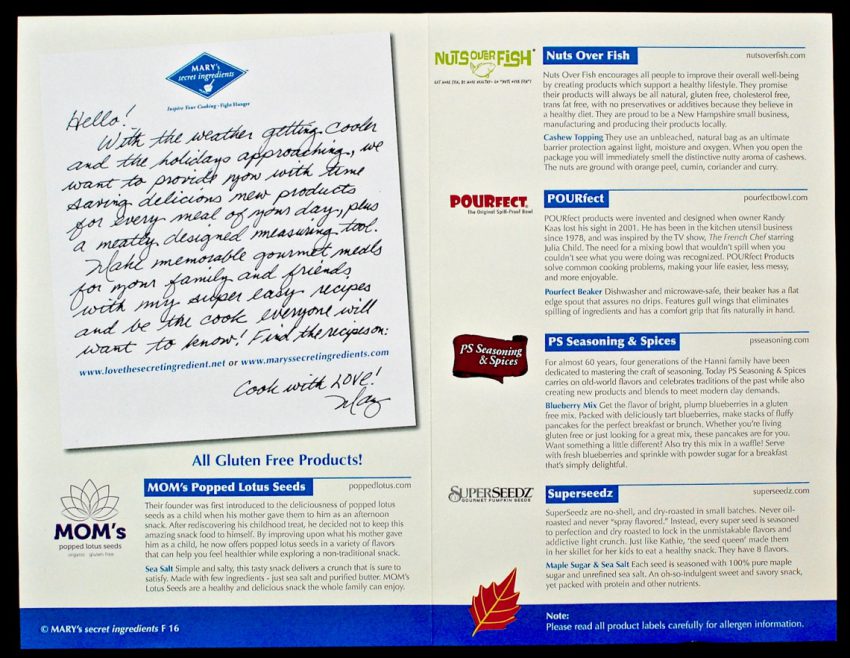 MARY's
secret ingredients
Inspire Your Cooking - Fight Hunger
Hello!
With the weather getting cooler
and the holidays approaching, we
want to provide you with time
saving delicious new products
for every meal of your day, plus
a neatly designed measuring tool.
Make memorable gourmet meals
for your family and friends
with my super easy recipes
and be the cook everyone will
want to know! Find the recipes on:
www.lovethesecretingredient.net or www.maryssecretingredients.com
Cook with LOVE!
Mary
All Gluten Free Products!
MOM's
popped lotus seeds
organic gluten free
MOM's Popped Lotus Seeds poppedlotus.com
Their founder was first introduced to the deliciousness of popped lotus
seeds as a child when his mother gave them to him as an afternoon
snack. After rediscovering his childhood treat, he decided not to keep this
amazing snack food to himself. By improving upon what his mother gave
him as a child, he now offers popped lotus seeds in a variety of flavors
that can help you feel healthier while exploring a non-traditional snack.
Sea Salt Simple and salty, this tasty snack delivers a crunch that is sure to
satisfy. Made with few ingredients - just sea salt and purified butter. MOM's
Lotus Seeds are a healthy and delicious snack the whole family can enjoy.
© MARY's secret ingredients F 16
NUTS OVER FISH
EAT MORE FISH, BE MORE HEALTHY - GO "NUTS OVER FISH"!
Nuts Over Fish nutsoverfish.com
Nuts Over Fish encourages all people to improve their overall well-being
by creating products which support a healthy lifestyle. They promise
their products will always be all natural, gluten free, cholesterol free,
trans fat free, with no preservatives or additives because they believe in
a healthy diet. They are proud to be a New Hampshire small business,
manufacturing and producing their products locally.
Cashew Topping They use an unbleached, natural bag as an ultimate
barrier protection against light, moisture and oxygen. When you open the
package you will immediately smell the distinctive nutty aroma of cashews.
The nuts are ground with orange peel, cumin, coriander and curry.
POURfect.
The Original Spill-Proof Bowl
POURfect pourfectbowl.com
POURfect products were invented and designed when owner Randy
Kaas lost his sight in 2001. He has been in the kitchen utensil business
since 1978, and was inspired by the TV show, The French Chef starring
Julia Child. The need for a mixing bowl that wouldn't spill when you
couldn't see what you were doing was recognized. POURfect Products
solve common cooking problems, making your life easier, less messy,
and more enjoyable.
Pourfect Beaker Dishwasher and microwave-safe, their beaker has a flat
edge spout that assures no drips. Features gull wings that eliminates
spilling of ingredients and has a comfort grip that fits naturally in hand.
PS Seasoning
& Spices
PS Seasoning & Spices psseasoning.com
For almost 60 years, four generations of the Hanni family have been
dedicated to mastering the craft of seasoning. Today PS Seasoning & Spices
carries on old-world flavors and celebrates traditions of the past while also
creating new products and blends to meet modern day demands.
Blueberry Mix Get the flavor of bright, plump blueberries in a gluten
free mix. Packed with deliciously tart blueberries, make stacks of fluffy
pancakes for the perfect breakfast or brunch. Whether you're living
gluten free or just looking for a great mix, these pancakes are for you.
Want something a little different? Also try this mix in a waffle! Serve
with fresh blueberries and sprinkle with powder sugar for a breakfast
that's simply delightful.
SUPERSEEDZ
GOURMET PUMPKIN SEEDS
Superseedz superseedz.com
SuperSeedz are no-shell, and dry-roasted in small batches. Never oil-
roasted and never "spray flavored." Instead, every super seed is seasoned
to perfection and dry roasted to lock in the unmistakable flavors and
addictive light crunch. Just like Kathie, 'the seed queen' made them
in her skillet for her kids to eat a healthy snack. They have 8 flavors.
Maple Sugar & Sea Salt Each seed is seasoned with 100% pure maple
sugar and unrefined sea salt. An oh-so-indulgent sweet and savory snack,
yet packed with protein and other nutrients.
Note:
Please read all product labels carefully for allergen information.